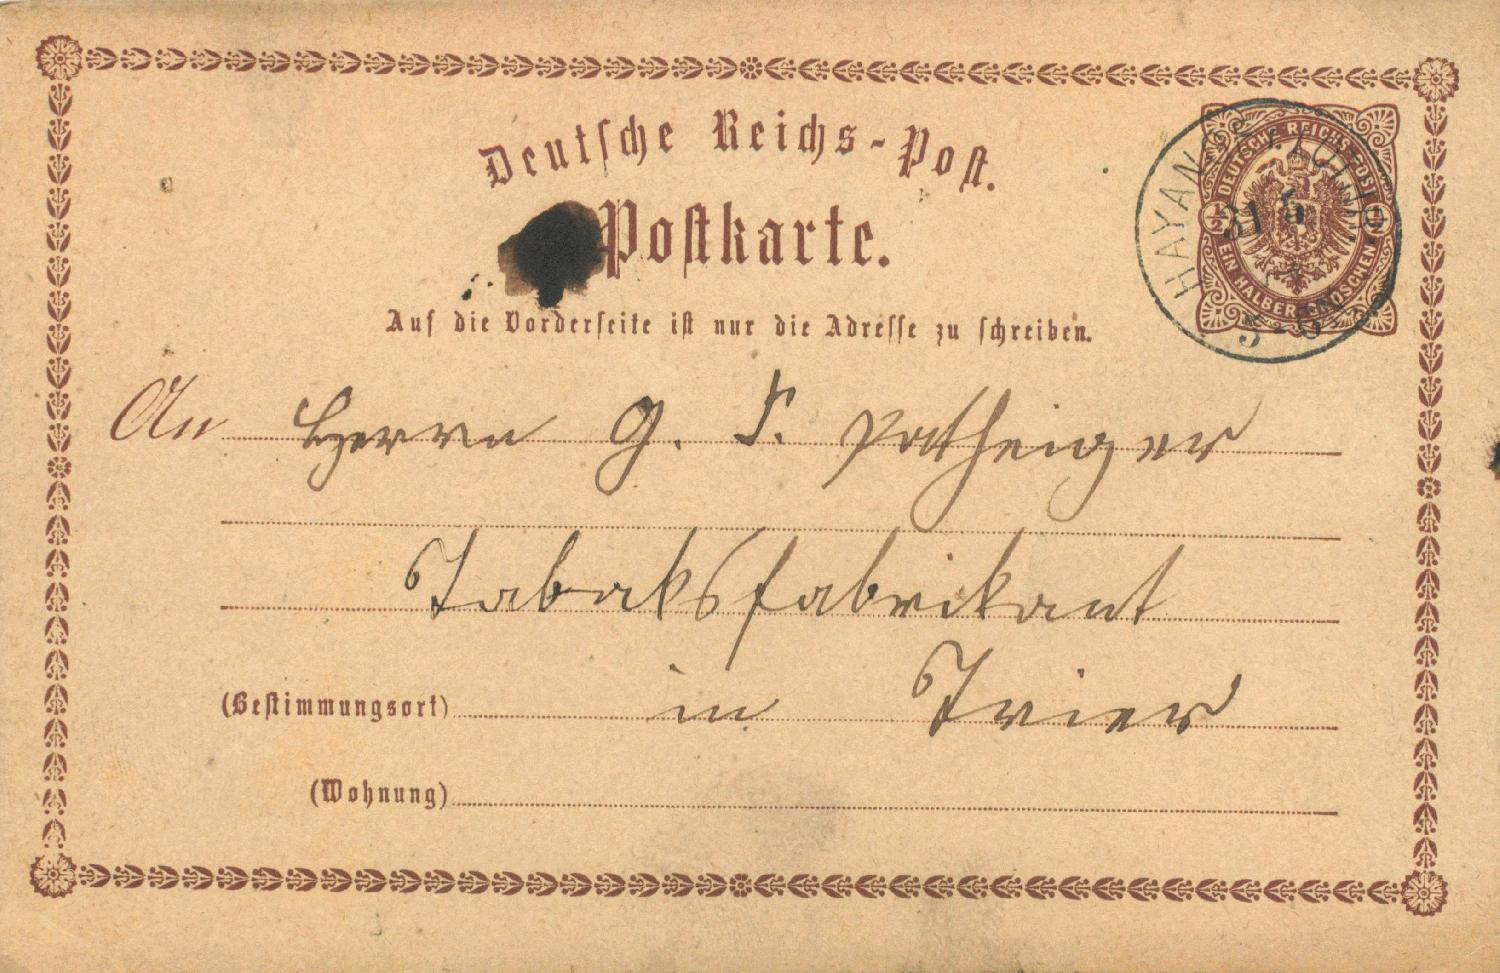 Deutsche Reichs-Post.
Postkarte.
Auf die Vorderseite ist nur die Adresse zu schreiben.
DEUTSCHE REICHS-POST
½ ½
EIN HALBER GROSCHEN
31 5
5-6
An Herrn G. F.
Tabaksfabrikant
(Bestimmungsort) in Trier
(Wohnung)